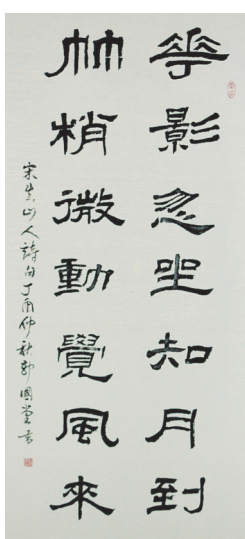 華影忽生知月到
竹梢微動覺風來
宋真山人詩句丁酉仲秋郭國堂書